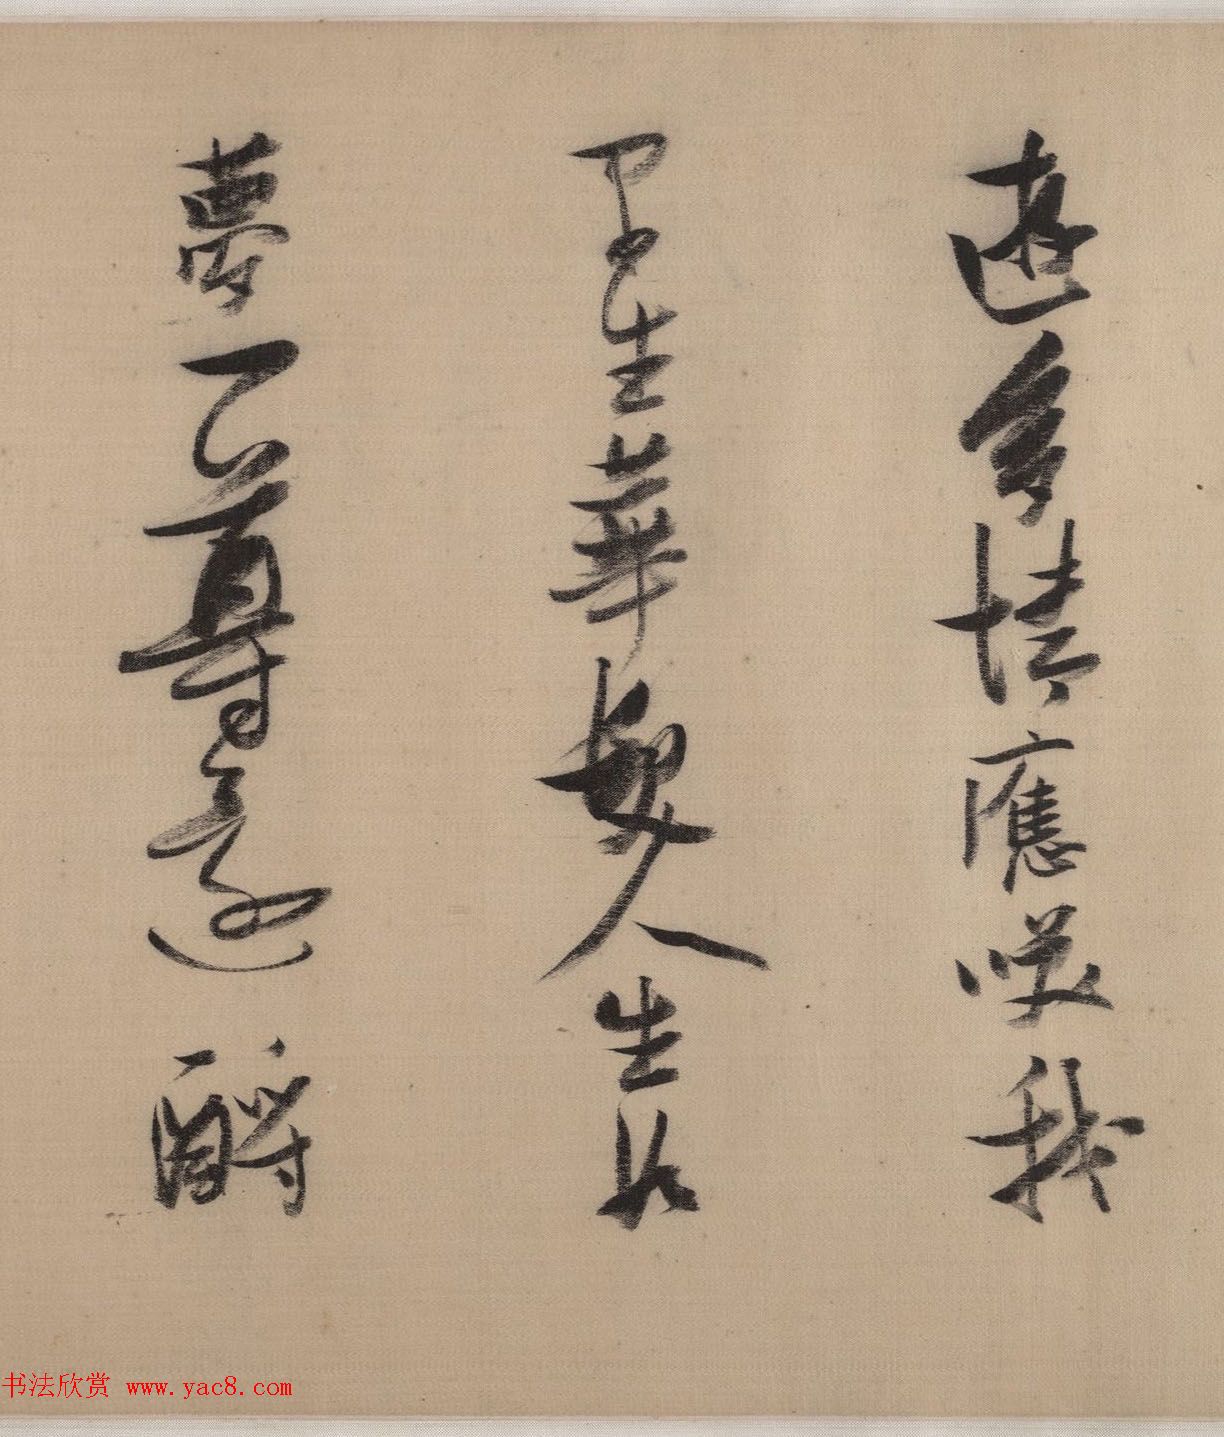 遊多情應咲我
早生華髮人生如
夢一尊還酹
书法欣赏 www.yac8.com